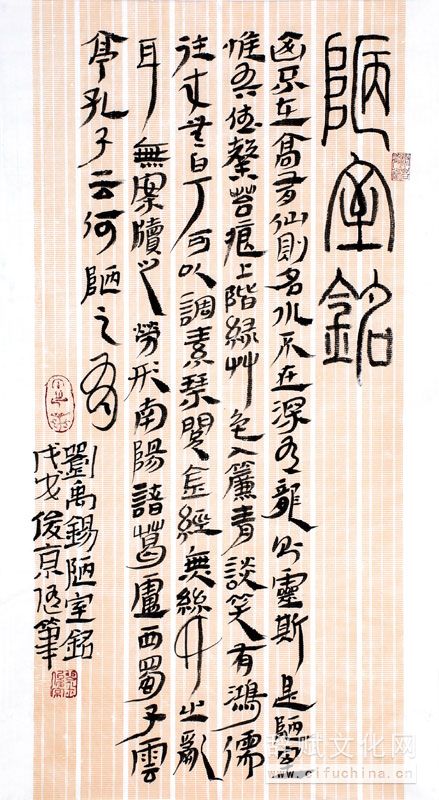 陋室銘
山不在高有仙則名水不在深有龍則靈斯是陋室
惟吾德馨苔痕上階綠艸色入簾青談笑有鴻儒
往來無白丁可以調素琴閱金經無絲竹之亂
耳無案牘之勞形南陽諸葛廬西蜀子雲
亭孔子云何陋之有
劉禹錫陋室銘
戊戌俊京筆
辞赋文化网
www.cifuchina.com